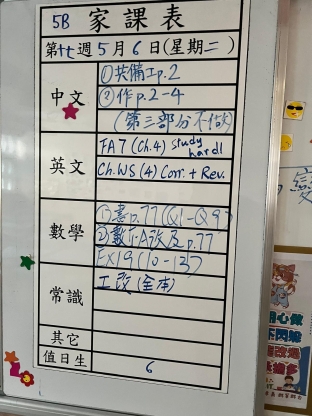 5B 家課表
第廿週5月6日(星期二)
中文
①共備工p.2
②作p.2-4
(第三部分不做)
英文
FA7 (Ch.4) study hard!
Ch.WS (4) Corr. + Rev.
數學
①書p.77(Q1-Q9)
Ex19(10-13)
常識
工改(全本)
其它
值日生 6
變
心做